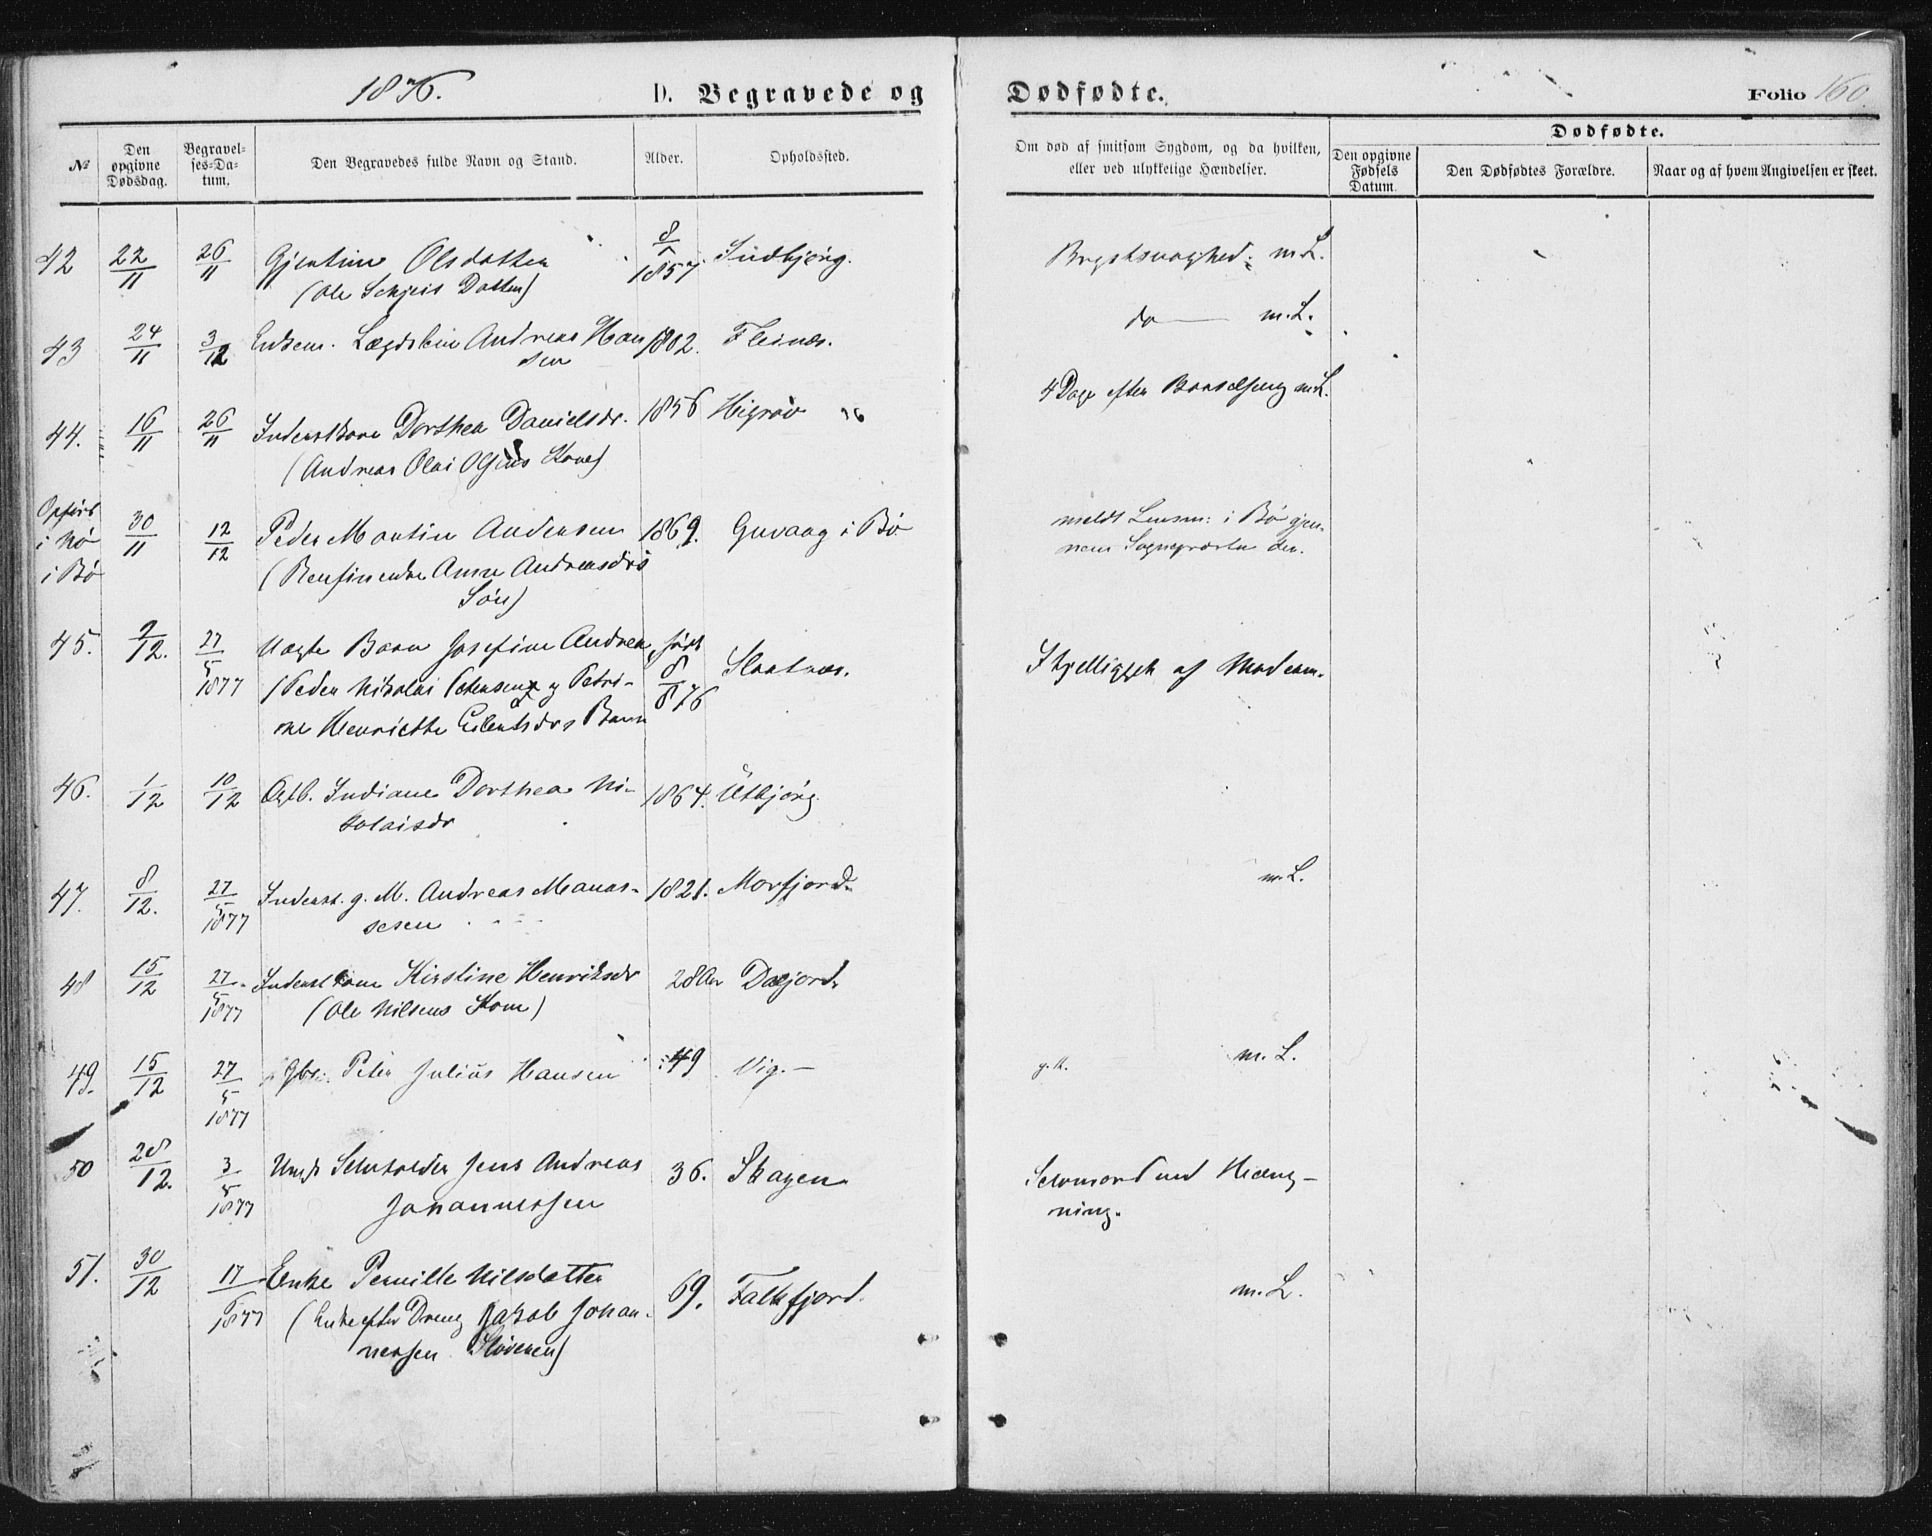 1876. D. Begravede og Dødfødte. Folio 160.
№
Den opgivne Dødsdag.
Begravel-
ses-Da-
tum.
Den Begravedes fulde Navn og Stand.
Alder.
Opholdssted.
Om død af smitsom Sygdom, og da hvilken,
eller ved ulykkelige Hændelser.
Dødfødte.
Den opgivne
Fødsels
Datum.
Den Dødfødtes Forældre.
Naar og af hvem Angivelsen er skeet.
42 22/11 26/11 Gjertine Olsdatter 8/1 1857. Indbjørg. Brystsvaghed. m.L.
(Ole Schjeis Datter)
43 24/11 3/12 Enkem. Lægdslem Andreas Han 1802. Fleines. do — m.L.
sen
44. 16/11 26/11 Inderstkone Dorthea Danielsdr. 1856 4 Dage efter Barselseng m.L.
(Andreas Olai Kone)
Opført
i No
i Bø
30/11 12/12 Peder Martin Andersen 1869. Guvaag i Bø meldt Lensm: i Bø gjen-
(Andreasdrs nem Sognepræsten der.
Søn)
45. 2/12. 27/5 1877 Barn Josefine Andrea født 8/8 76 Slaatnæs. Ihjelligget af Moderen.
(Peder Nikolai Petersens og Petri-
ne Henriette Eilertsdrs Barn
46. 1/12 10/12 Indiane Dorthea Ni- 1864. Utbjørg.
kolaisdr
47. 8/12. 27/5 1877 Inderst. g. M. Andreas Manas- 1821. Morfjord. m.L.
sesen
48 15/12 27/5 1877 Inderstkone Kirstine Henriksdr 28 Aar Daljord.
(Ole Nilsens Kone)
49. 15/12 27/5 1877 Gbr. Peter Julius Hansen 49 Vig. — m.L.
50 28/12. 3/5 1877 Ungk. Selvholder Jens Andreas 36. Skagen Selvmord ved Hæng-
Johannessen ning.
51. 30/12 17/6 1877 Enke Pernille Nilsdatter 69. Falkfjord. m.L.
(Enke efter Dreng Jakob Johan-
nessen